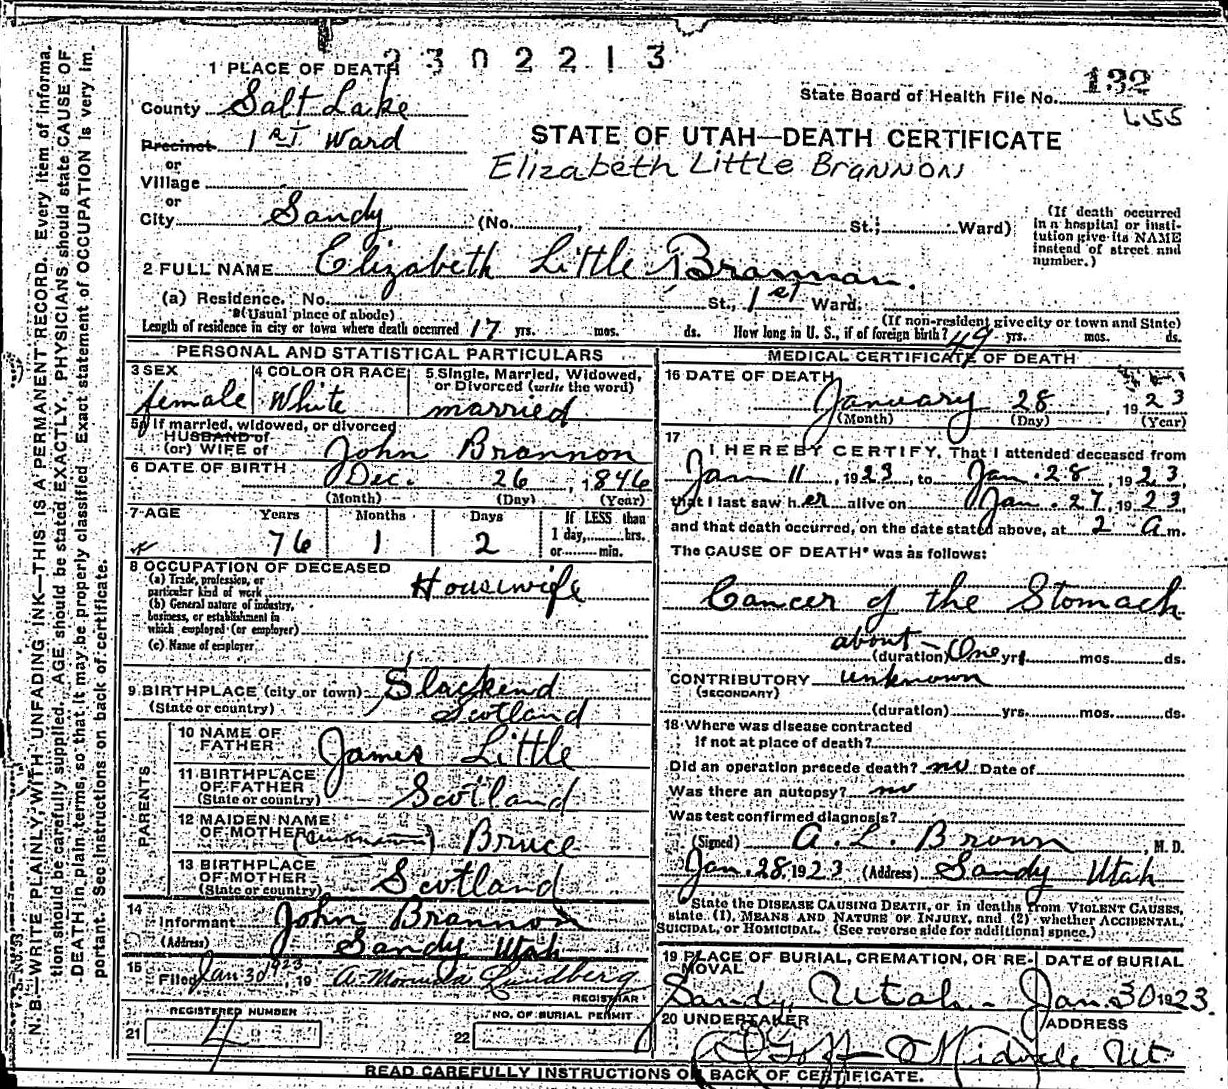 2302213
1 PLACE OF DEATH
132
State Board of Health File No.
655
County Salt Lake
Precinct 1st Ward
STATE OF UTAH—DEATH CERTIFICATE
or
Village
Elizabeth Little Brannon
or
City Sandy (No. , St.; Ward)
(If death occurred in a hospital or institution give its NAME instead of street and number.)
2 FULL NAME Elizabeth Little Brannan.
(a) Residence. No. St., 1st Ward.
(Usual place of abode)
(If non-resident give city or town and State)
Length of residence in city or town where death occurred 17 yrs. mos. ds. How long in U. S., if of foreign birth? 49 yrs. mos. ds.
PERSONAL AND STATISTICAL PARTICULARS
3 SEX female
4 COLOR OR RACE White
5 Single, Married, Widowed, or Divorced (write the word) married
5a If married, widowed, or divorced
HUSBAND of
(or) WIFE of John Brannon
6 DATE OF BIRTH Dec. 26, 1846
(Month) (Day) (Year)
7 AGE Years Months Days If LESS than
76 1 2 1 day, hrs.
or min.
8 OCCUPATION OF DECEASED
(a) Trade, profession, or particular kind of work Housewife
(b) General nature of industry, business, or establishment in which employed (or employer)
(c) Name of employer
9 BIRTHPLACE (city or town) Slackend
(State or country) Scotland
PARENTS
10 NAME OF FATHER James Little
11 BIRTHPLACE OF FATHER (State or country) Scotland
12 MAIDEN NAME OF MOTHER (unknown) Bruce
13 BIRTHPLACE OF MOTHER (State or country) Scotland
14
Informant John Brannon
(Address) Sandy Utah
15
Filed Jan 30 1923, 19
REGISTRAR
REGISTERED NUMBER
21 4
NO. OF BURIAL PERMIT
22
MEDICAL CERTIFICATE OF DEATH
16 DATE OF DEATH
January 28, 1923
(Month) (Day) (Year)
17
I HEREBY CERTIFY, That I attended deceased from
Jan 11, 1923, to Jan. 28, 1923,
that I last saw her alive on Jan. 27, 1923
and that death occurred, on the date stated above, at 2 a m.
The CAUSE OF DEATH* was as follows:
Cancer of the Stomach
about
(duration) One yrs. mos. ds.
CONTRIBUTORY unknown
(SECONDARY)
(duration) yrs. mos. ds.
18 Where was disease contracted
if not at place of death?
Did an operation precede death? no Date of
Was there an autopsy? no
Was test confirmed diagnosis?
(Signed) A. L. Brown, M. D.
Jan. 28, 1923 (Address) Sandy Utah
State the DISEASE CAUSING DEATH, or in deaths from VIOLENT CAUSES,
state (1), MEANS AND NATURE OF INJURY, and (2) whether ACCIDENTAL,
SUICIDAL, or HOMICIDAL. (See reverse side for additional space.)
19 PLACE OF BURIAL, CREMATION, OR RE-MOVAL DATE OF BURIAL
Sandy Utah Jan 30 1923.
20 UNDERTAKER ADDRESS
Goff Midvale Ut
READ CAREFULLY INSTRUCTIONS ON BACK OF CERTIFICATE.
N. B.—WRITE PLAINLY, WITH UNFADING INK—THIS IS A PERMANENT RECORD. Every item of informa-
tion should be carefully supplied. AGE should be stated EXACTLY, PHYSICIANS should state CAUSE OF
DEATH in plain terms, so that it may be properly classified. Exact statement of OCCUPATION is very im-
portant. See instructions on back of certificate.